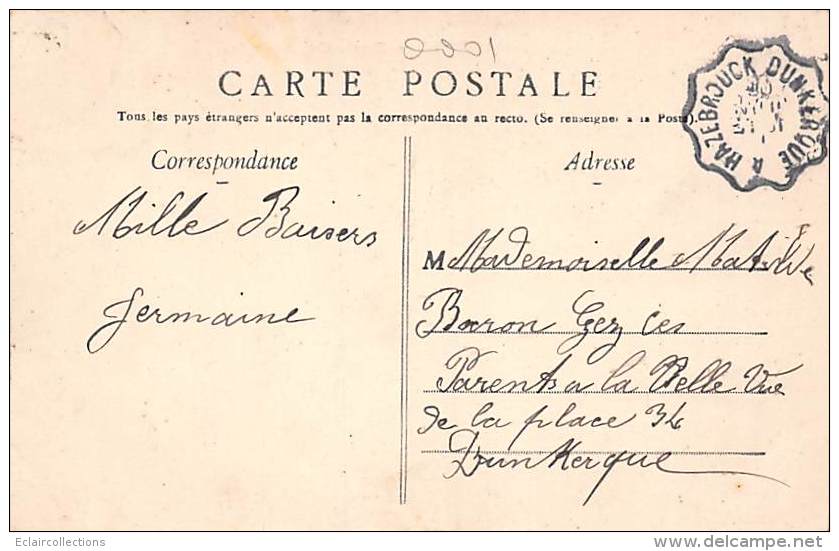 1000
CARTE POSTALE
Tous les pays étrangers n'acceptent pas la correspondance au recto. (Se renseigner à la Poste).
HAZEBROUCK A DUNKERQUE
Correspondance
Adresse
Mille Baisers
Jermaine
M Mademoiselle
Baron Gez Ces
Parents a la Belle Vue
de la place 34
Dunkerque
Eclaircollections
www.delcampe.net